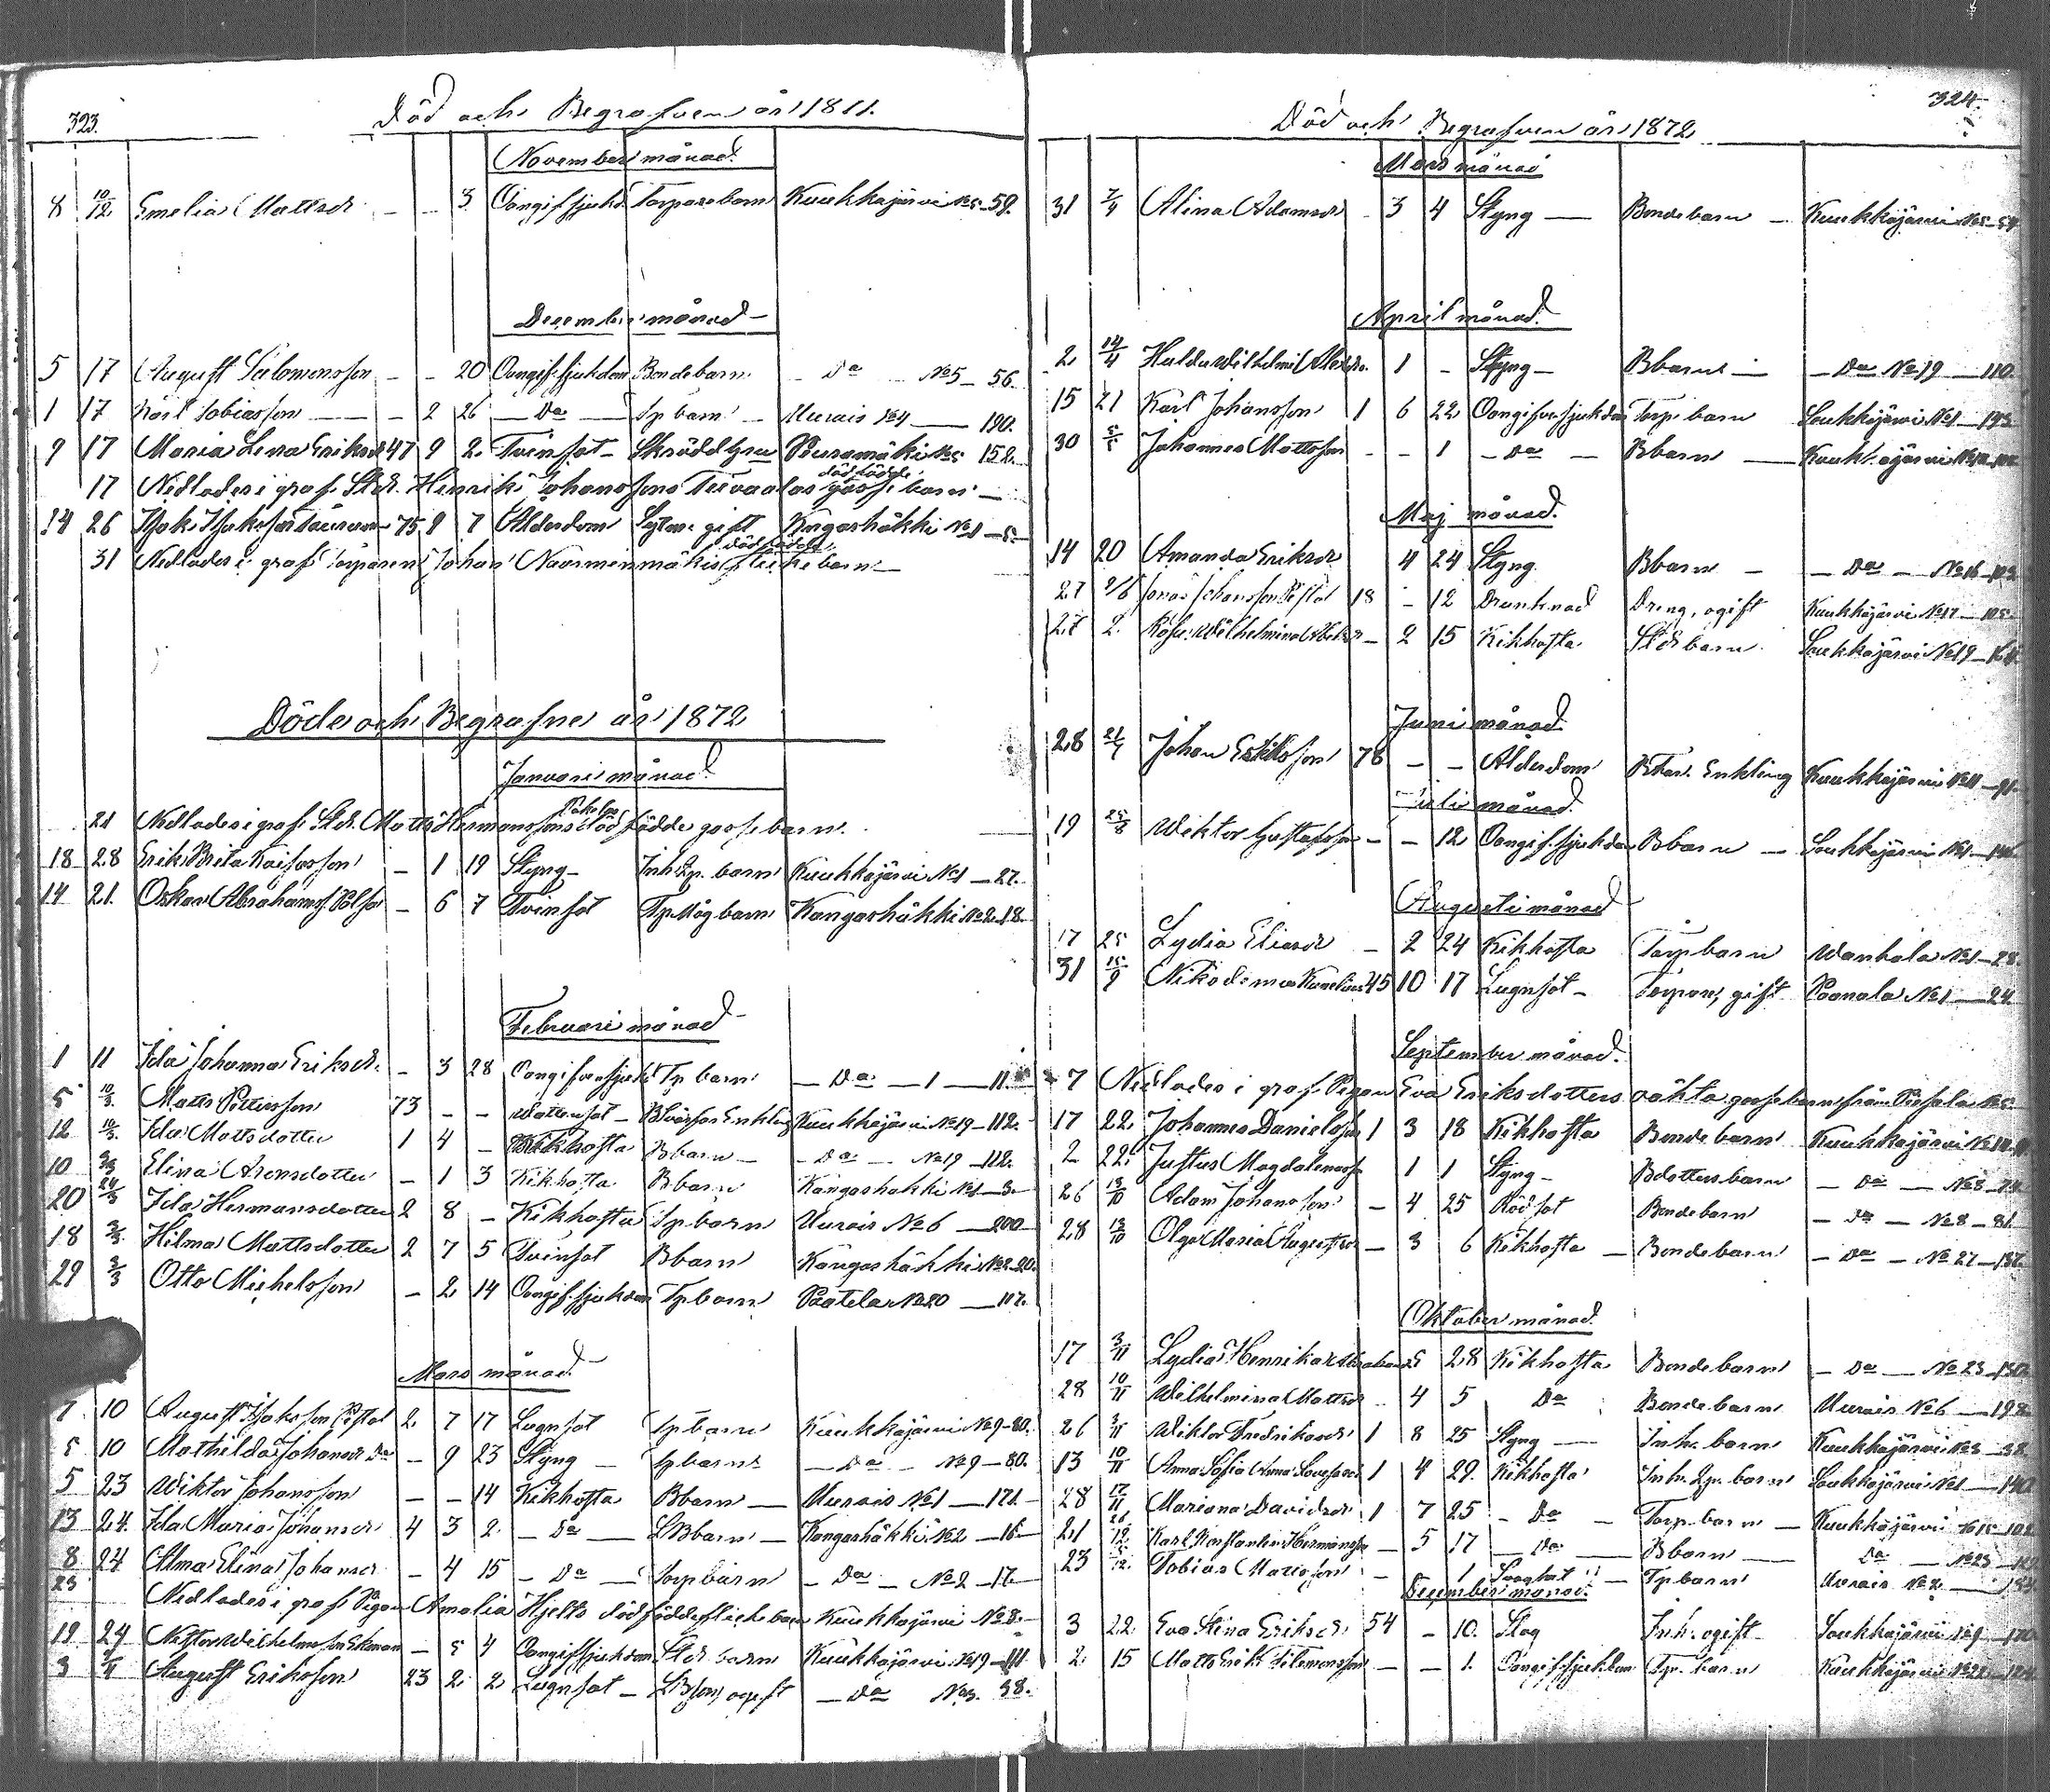 323.
Död och Begrafven år 1811.
November månad.
8 10/12 Emelia Mattsdr - - 3 Oangif. sjukd. Torparebarn Kuukkajärvi No 5 - 59.
December månad
5 17 August Salomonsson - - 20 Oangif. sjukdom Bondebarn - Do No 5 - 56.
1 17 Karl Tobiasson - 2 26 - Do - Tp barn - Murais No 4 - 190.
9 17 Maria Lena Eriksdr 47 9 2. Tvinsot - No 5 152.
17 Nedlades i graf Henrik Johanssons dödfödde gosse barn -
14 26 Isak Isaksson 75 9 7 Ålderdom gift Kangashäkki No 1 - 5
31 Nedlades i graf Torparen Johan dödfödde flickebarn -
Döde och Begrafne år 1872
Januari månad.
21 Nedlades i graf Matts Hermanssons dödfödde gossebarn.
18 28 Erik Brita - 1 19 Styng - Inh. Tp. barn Kuukkajärvi No 1 - 27.
14 21. Oskar Abrahamss - 6 7 Tvinsot Tp. Måg barn Kangashäkki No 2 18.
Februari månad
1 11 Ida Johanna Eriksdr. - 3 28 Oangifven sjukd. Tp barn - Do - 1 - 11.
5 10/3. Matts Pettersson 73 - - Vattusot - Enkling Kuukkajärvi No 19 - 112.
12 10/3. Ida Mattsdotter 1 4 - Kikhosta Bbarn - - Do - No 19 - 112.
10 Elina Aronsdotter - 1 3 Kikhosta Bbarn Kangashakki No 1 - 3.
20 24/3 Ida Hermansdotter 2 8 - Kikhosta Tp barn Murais No 6 - 200
18 Hilma Mattsdotter 2 7 5 Tvinsot Bbarn Kangashäkki No 2 - 20.
29 3/3 Otto Michelsson - 2 14 Oangif. sjukdom Tp barn Paatela No 20 - 117.
Mars månad.
7 10 August Isaksson 2 7 17 Lugnsot Tp barn Kuukkajärvi No 9 - 80.
5 10 Mathilda Johansdr Do - 9 23 Styng - Tp barn - Do - No 9 - 80.
5 23 Wiktor Johansson - - 14 Kikhosta Bbarn - Murais No 1 - 171.
13 24. Ida Maria Johansdr 4 3 2. - Do - Bbarn - Kangashäkki No 2 - 16
8 24 Alma Elina Johansdr - 4 15 - Do - Torp barn - Do - No 2 - 17.
23 Nedlades i graf Pigan Amalia Hjelts dödfödde flickebarn Kuukkajärvi No 8. -
19 24 Wilhelmsson Ekman - 5 4 Oangif sjukdom barn Kuukkajärvi No 19 - 111
3 August Eriksson 23 2 2 Lugnsot - ogift - Do No 3. 38.
324.
Död och Begrafven år 1872
Mars månad
31 7/4 Alina Adamsdr - 3 4 Styng - Bondebarn - Kuukkajärvi No 5 - 57
April månad.
2 14/4 Hulda Wilhelmina 1 - Styng - Bbarn - - Do No 19 - 110.
15 21 Karl Johansson 1 6 22 Oangifven sjukdom Torp. barn Loukkajärvi No 1 - 143
30 5/5 Johannes Mattsson - - 1 - Do - Bbarn - Kuukkajärvi
Maj månad.
14 20 Amanda Eriksdr 4 24 Styng Bbarn - - Do - No 16 - 103.
27 2/6 Jonas Johansson 18 - 12 Drunknad Dreng, ogift Kuukkajärvi No 17 - 105
27 2. Rosa Wilhelmina - 2 15 Kikhosta barn Loukkajärvi No 19 - 164
Juni månad.
28 21/7 Johan Eskilsson 78 - - Ålderdom Enkling Kuukkajärvi No 11 - 91
Juli månad.
19 25/8 Wiktor Gustafsson - - 12 Oangif. sjukdom Bbarn - Loukkajärvi No 1 - 146
Augusti månad
17 25 Lydia Eliasdr - 2 24 Kikhosta Torp barn Wanhala No 1 - 28.
31 15/9 Nikodemus 45 10 17 Lugnsot - Torpare, gift Paanala No 1 - 24
September månad.
7 Nedlades i graf Pigan Eva Eriksdotters oäkta gossebarn från
17 22. Johannes Danielsson 1 3 18 Kikhosta Bondebarn Kuukkajärvi No 14
2 22. Justus Magdalenasson 1 1 Styng - Bdotters barn - Do - No 8 - 74
26 13/10 Adam Johansson - 4 25 Rödsot Bondebarn - Do - No 8 - 81.
28 13/10 Olga Maria Augustsdr - 3 6 Kikhosta - Bondebarn - Do - No 27 - 137.
Oktober månad.
17 3/11 Lydia Henriksdr 5 28 Kikhosta Bondebarn - Do - No 23 - 130
28 10/11 Wilhelmina Mattsdr 4 5 Do Bondebarn Murais No 6 - 198
26 3/11 Wiktor Fredriksson 1 8 25 Styng - Inh. barn Kuukkajärvi No 3 - 38
13 10/11 Anna Sofia Anna Lovisasdr 1 4 29. Kikhosta Inh. Tp. barn Loukkajärvi No 1 - 140
28 17/11 Mariana Davidsdr 1 7 25 - Do - Torp. barn - Kuukkajärvi No 15 - 102
21 Karl Konstantin Hermansson - 5 17 - Do - Bbarn - Do - No 23 - 129
23 Tobias Mariasson - 1 - Tp barn Murais No 2 -
December månad.
3 22. Eva Stina Eriksdr 54 - 10. Slag Inh. ogift - Loukkajärvi No 9 - 170
2. 15 Matts Erik - - 1. Oangif. sjukdom Tp. barn Kuukkajärvi No 22 - 124